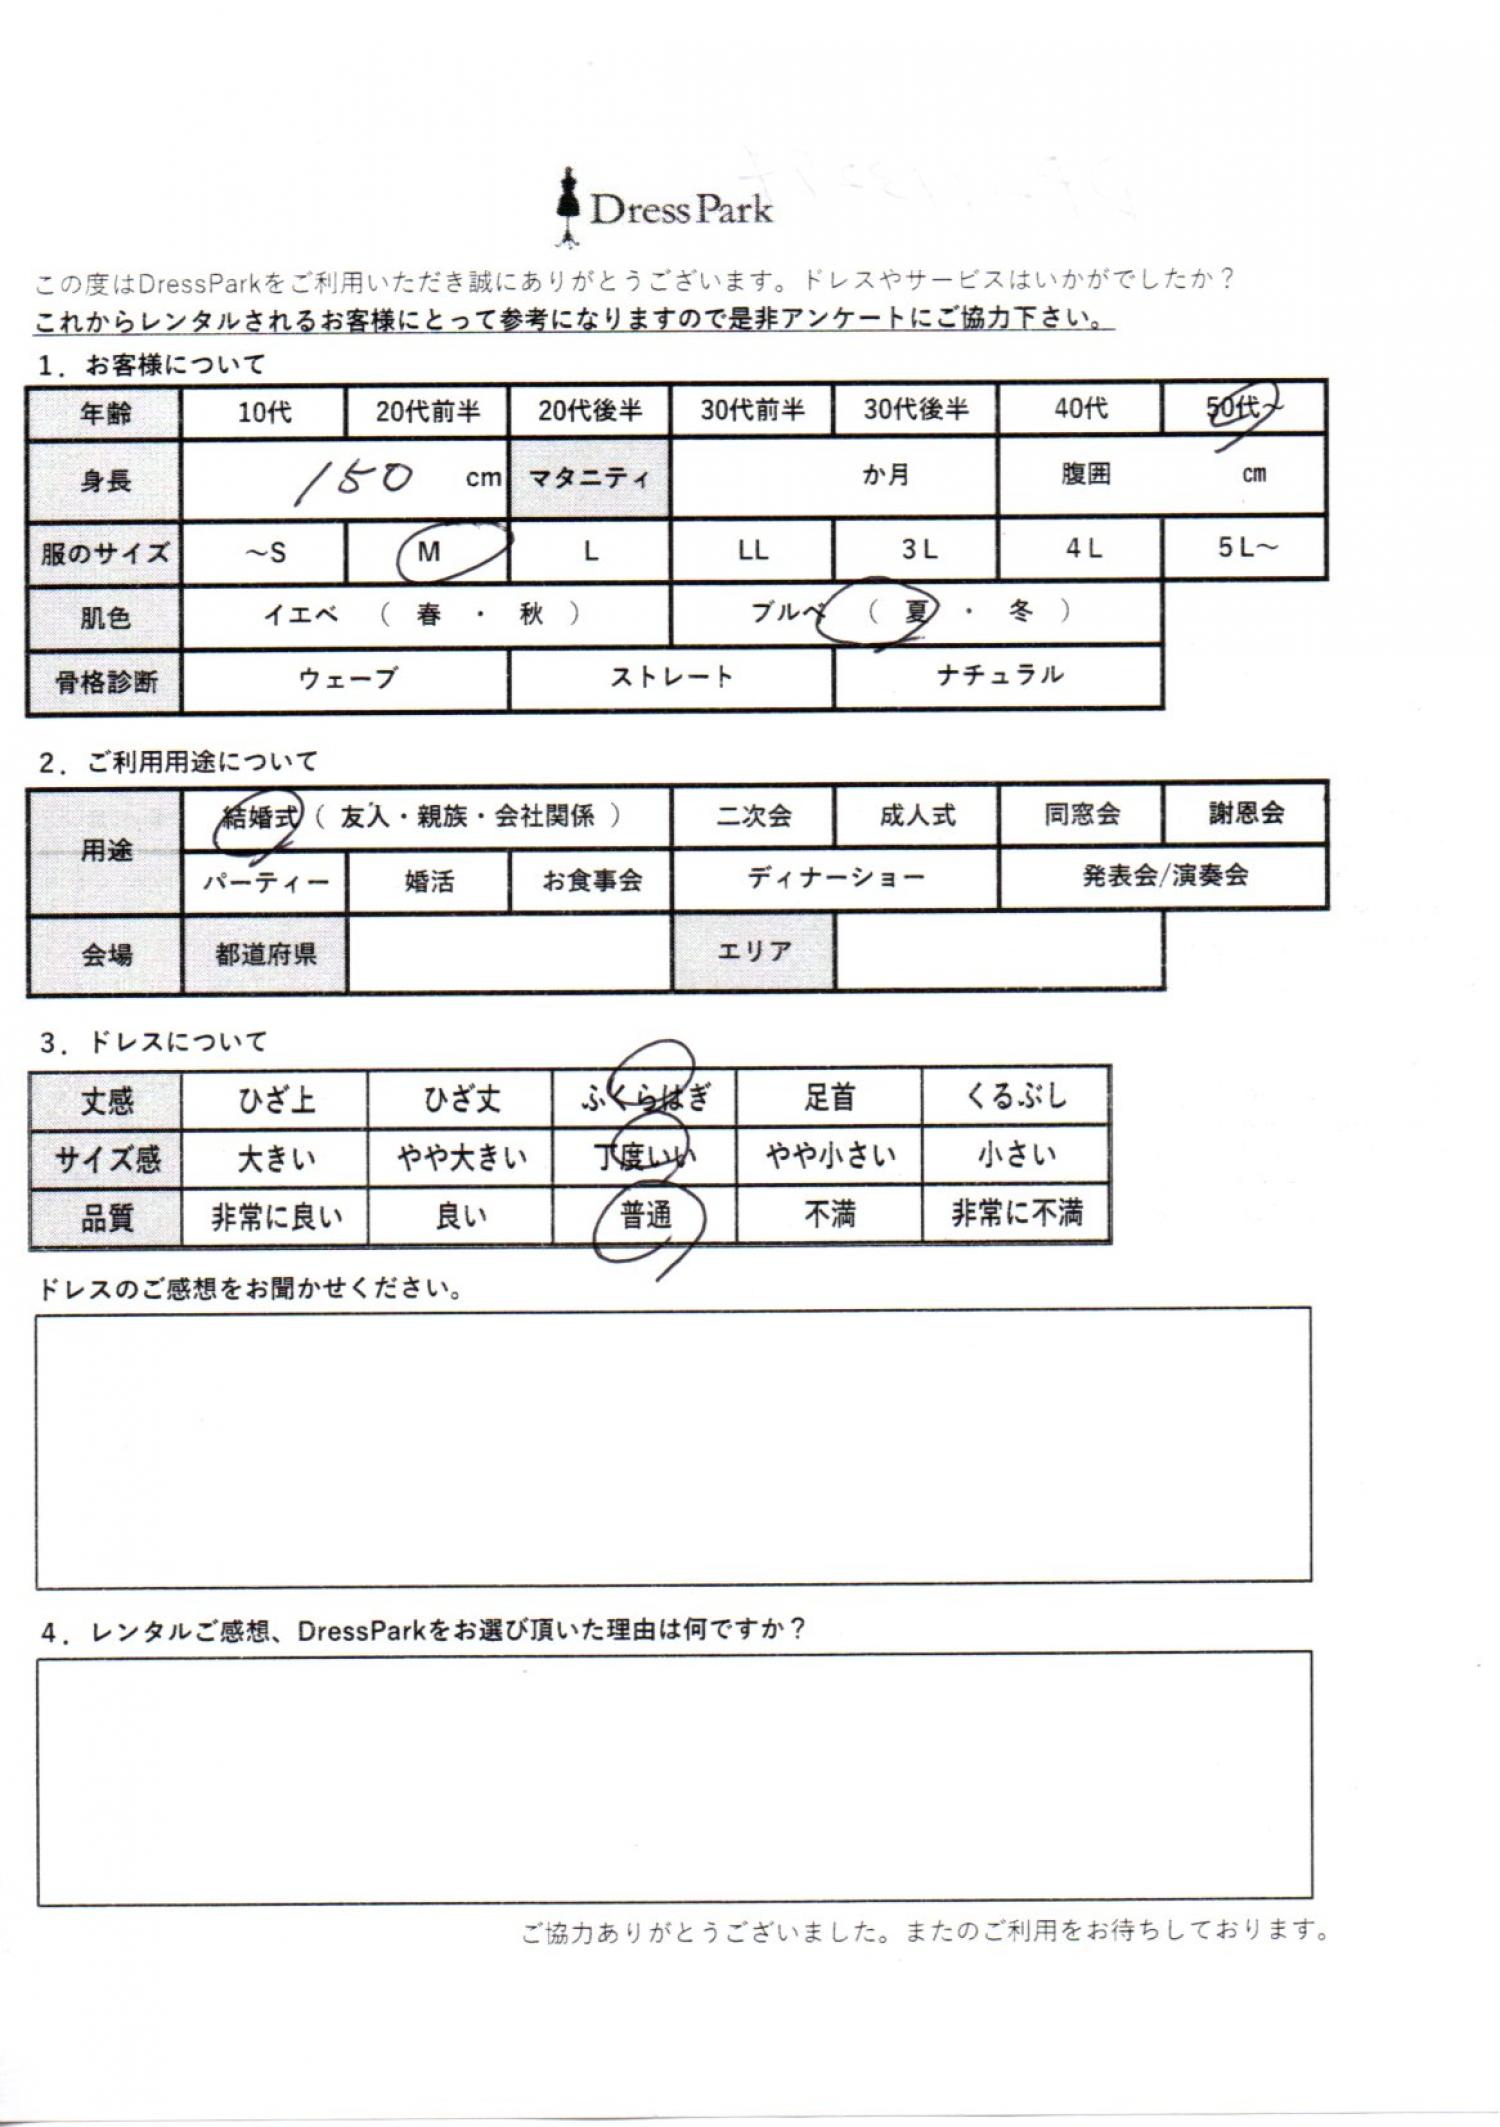 DressPark
この度はDressParkをご利用いただき誠にありがとうございます。ドレスやサービスはいかがでしたか？
これからレンタルされるお客様にとって参考になりますので是非アンケートにご協力下さい。
1．お客様について
年齢 10代 20代前半 20代後半 30代前半 30代後半 40代 50代～
身長 150 cm マタニティ か月 腹囲 cm
服のサイズ ～S M L LL 3L 4L 5L～
肌色 イエベ （ 春 ・ 秋 ） ブルベ （ 夏 ・ 冬 ）
骨格診断 ウェーブ ストレート ナチュラル
2．ご利用用途について
用途 結婚式（ 友人・親族・会社関係 ） 二次会 成人式 同窓会 謝恩会
パーティー 婚活 お食事会 ディナーショー 発表会/演奏会
会場 都道府県 エリア
3．ドレスについて
丈感 ひざ上 ひざ丈 ふくらはぎ 足首 くるぶし
サイズ感 大きい やや大きい 丁度いい やや小さい 小さい
品質 非常に良い 良い 普通 不満 非常に不満
ドレスのご感想をお聞かせください。
4．レンタルご感想、DressParkをお選び頂いた理由は何ですか？
ご協力ありがとうございました。またのご利用をお待ちしております。